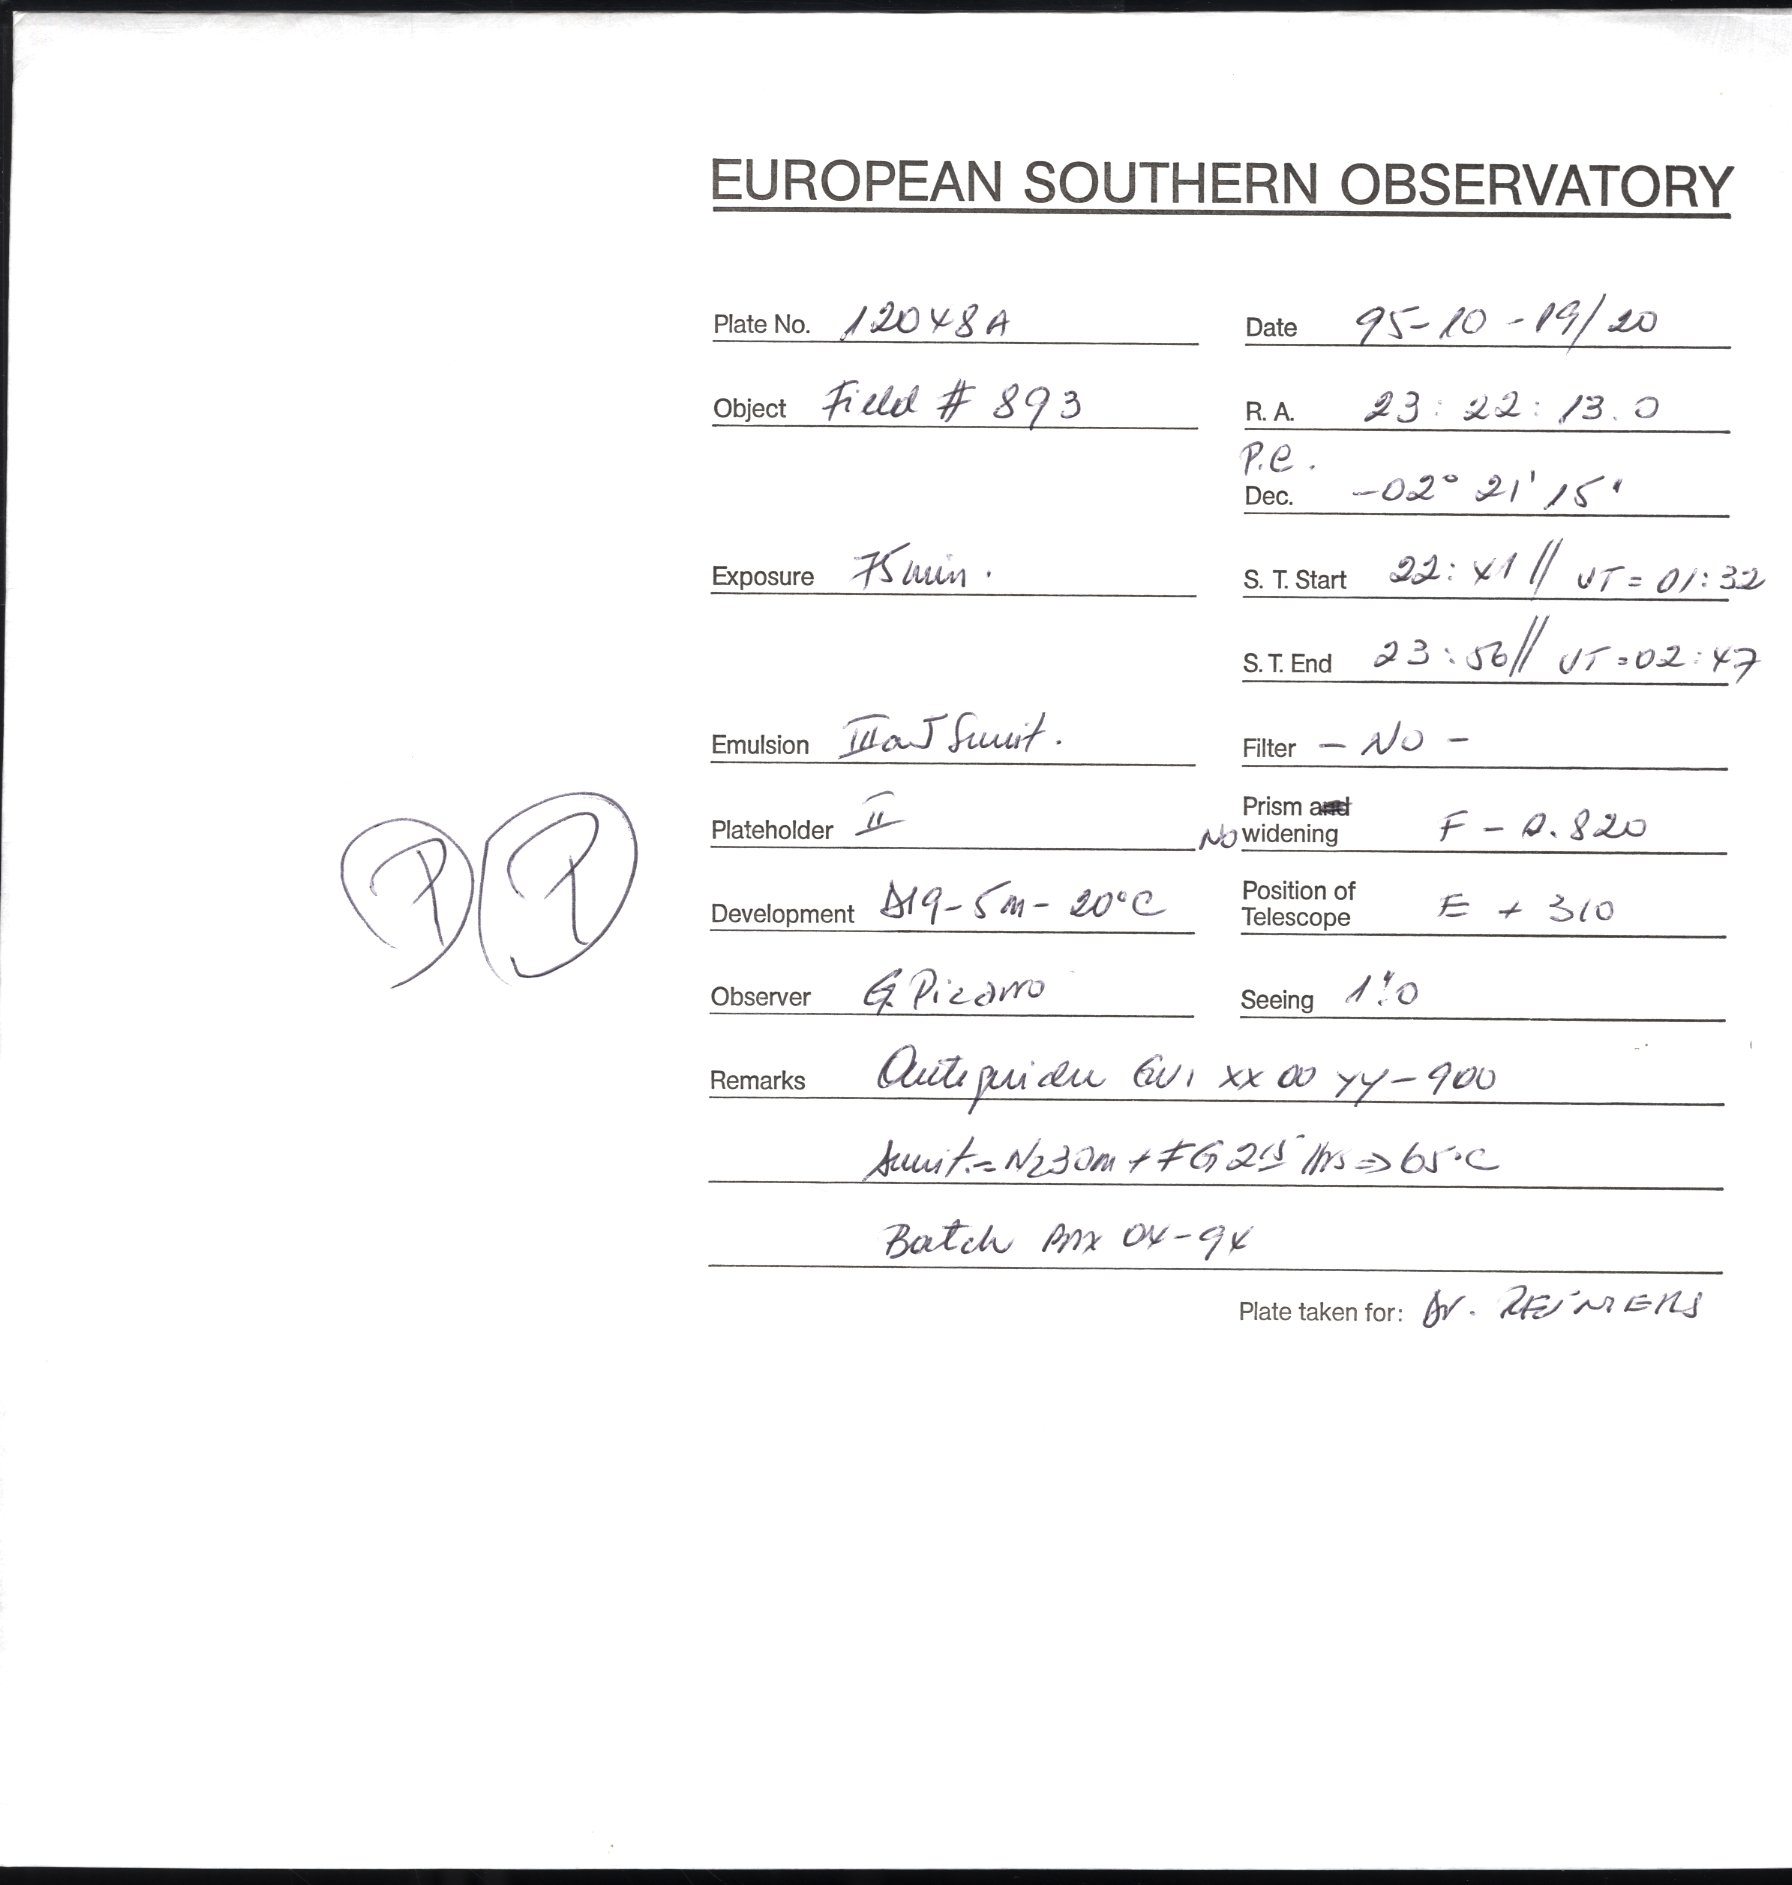 EUROPEAN SOUTHERN OBSERVATORY
Plate No. 12048A Date 95-10-19/20
Object Field # 893 R. A. 23:22:13.0
P.e.
Dec. -02° 21' 15"
Exposure 75 min. S. T. Start 22:41 // UT = 01:32
S. T. End 23:56 // UT = 02:47
Emulsion IIIaJ Sensit. Filter - No -
Plateholder II No Prism and widening F - 0.820
Development D19 - 5m - 20°C Position of Telescope E + 310
Observer G. Pizarro Seeing 1".0
Remarks Autoguider GV1 XX 00 YY-900
Sensit. = N2 30m + FG 2 Hrs => 65°C
Batch 04-94
Plate taken for: Dr. REIMERS
P P